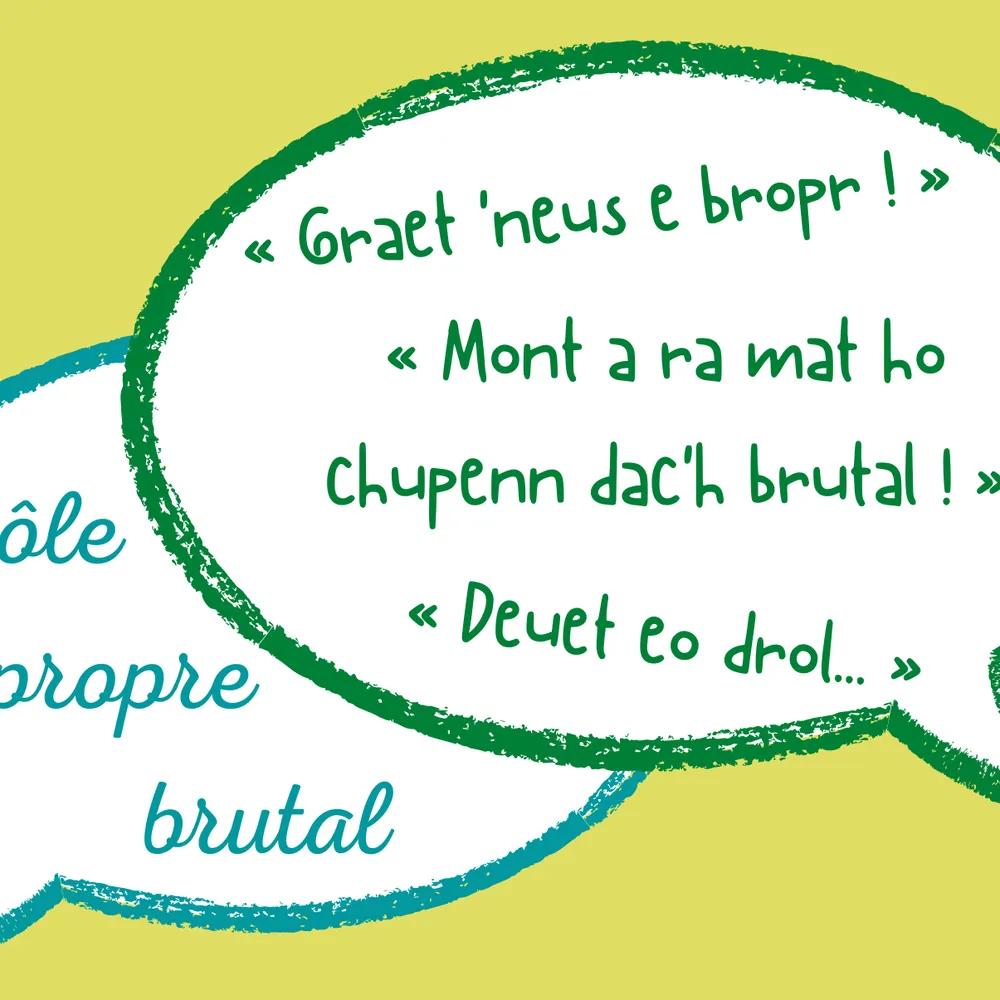 « Graet 'neus e bropr ! »
« Mont a ra mat ho
chupenn dac'h brutal ! »
« Deuet eo drol... »
ôle
propre
brutal